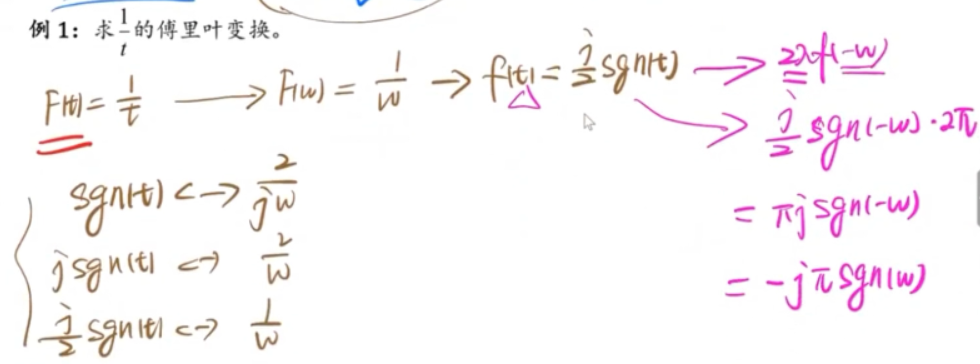 例 1：求1/t的傅里叶变换。
F(t) = 1/t → F(w) = 1/w → f(t) = j/2 sgn(t) → 2πf(-w)
→ j/2 sgn(-w)·2π
sgn(t) <-> 2/jw
= πj sgn(-w)
j sgn(t) <-> 2/w
= -jπ sgn(w)
j/2 sgn(t) <-> 1/w